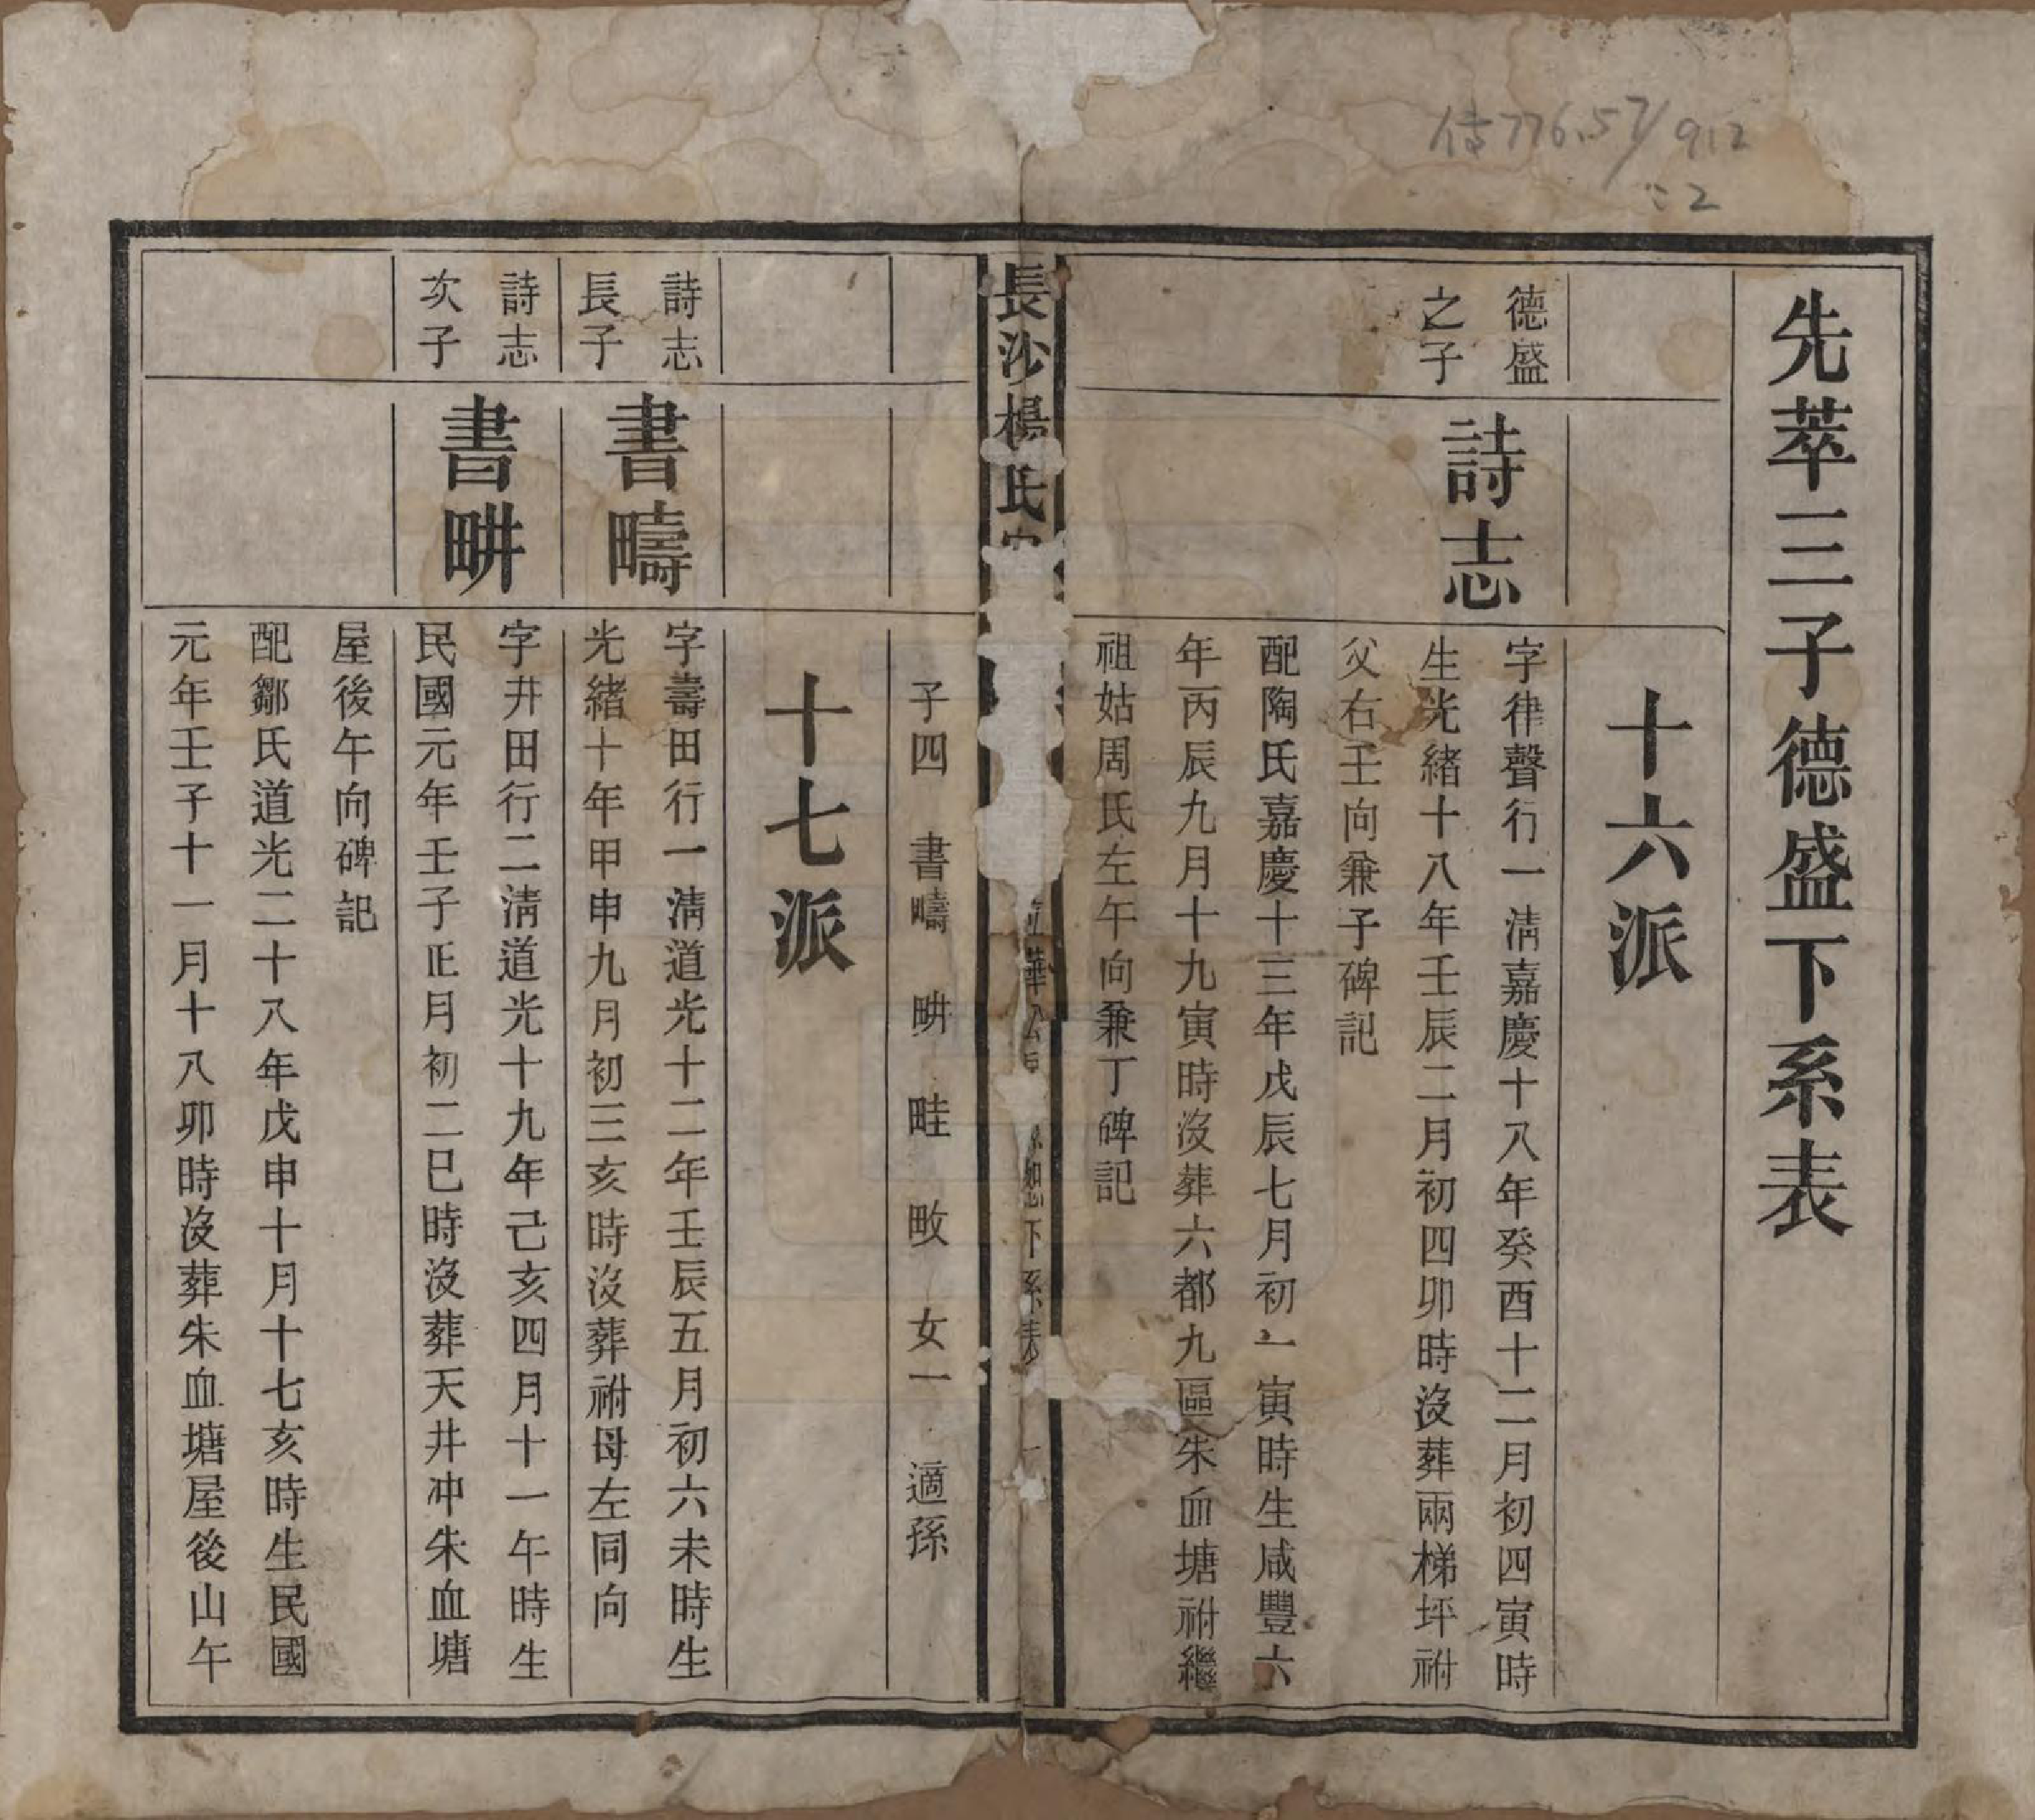 傳776.57/912
:2
先萃三子德盛下系表
十六派
德盛
之子
詩志
字律聲行一淸嘉慶十八年癸酉十二月初四寅時
生光緒十八年壬辰二月初四卯時沒葬兩梯坪祔
父右壬向兼子碑記
配陶氏嘉慶十三年戊辰七月初一寅時生咸豐六
年丙辰九月十九寅時沒葬六都九區朱血塘祔繼
祖姑周氏左午向兼丁碑記
長沙楊氏
下系表
一
子四 書疇 畊 畦 畋 女一 適孫
十七派
詩志
長子
書疇
字壽田行一淸道光十二年壬辰五月初六未時生
光緒十年甲申九月初三亥時沒葬祔母左同向
詩志
次子
書畊
字井田行二淸道光十九年己亥四月十一午時生
民國元年壬子正月初二巳時沒葬天井冲朱血塘
屋後午向碑記
配鄒氏道光二十八年戊申十月十七亥時生民國
元年壬子十一月十八卯時沒葬朱血塘屋後山午